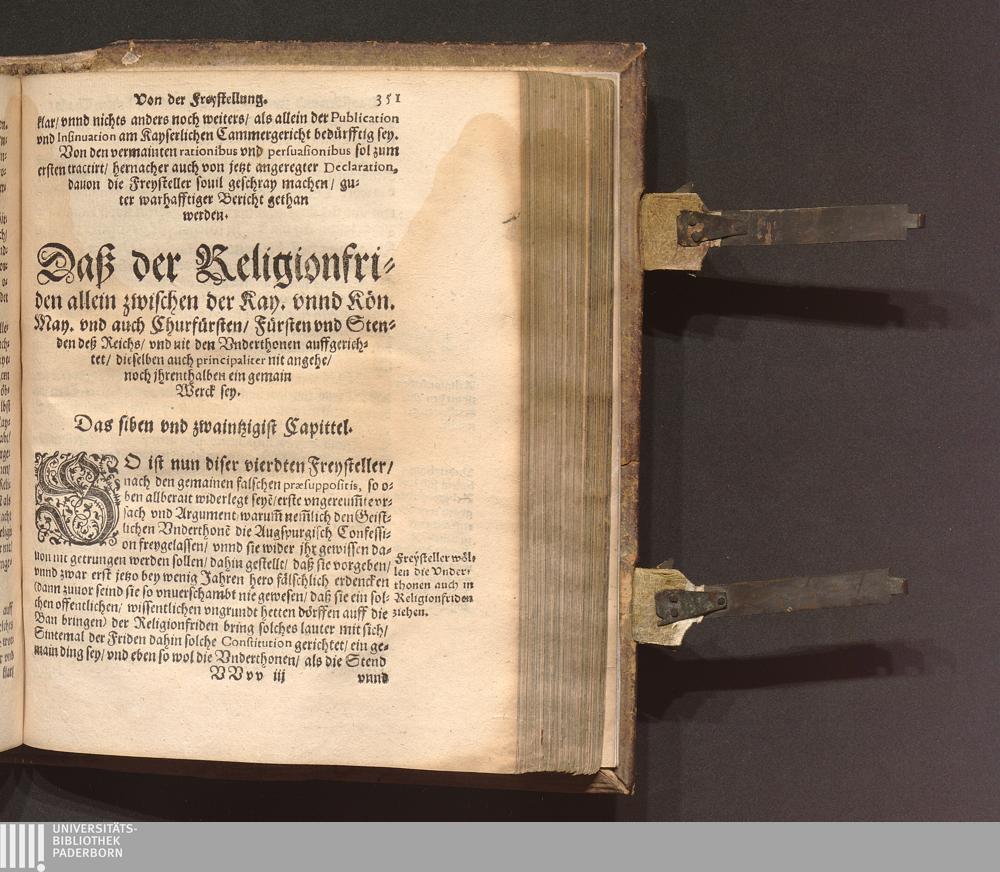 Von der Freystellung. 351
klar/ vnnd nichts anders noch weiters/ als allein der Publication
vnd Insinuation am Kayserlichen Cammergericht bedürfftig sey.
Von den vermainten rationibus vnd persuasionibus sol zum
ersten tractirt/ hernacher auch von jetzt angeregter Declaration,
dauon die Freysteller souil geschray machen/ gu-
ter warhafftiger Bericht gethan
werden.
Daß der Religionfri-
den allein zwischen der Kay. vnnd Kön.
May. vnd auch Churfürsten/ Fürsten vnd Sten-
den deß Reichs/ vnd nit den Vnderthonen auffgerich-
tet/ dieselben auch principaliter nit angehe/
noch jhrenthalben ein gemain
Werck sey.
Das siben vnd zwaintzigist Capittel.
SO ist nun diser vierdten Freysteller/
nach den gemainen falschen præsuppositis, so o-
ben allberait widerlegt seyē/ erste vngereumte vr-
sach vnd Argument/ warum̃ nemlich den Geist-
lichen Vnderthonē die Augspurgisch Confessi-
on freygelassen/ vnnd sie wider jhr gewissen da-
uon nit getrungen werden sollen/ dahin gestellt/ daß sie vorgeben/
vnnd zwar erst jetzo bey wenig Jahren hero fälschlich erdencken
(dann zuuor seind sie so vnuerschambt nie gewesen/ daß sie ein sol-
chen offentlichen/ wissentlichen vngrundt hetten dörffen auff die
Ban bringen) der Religionfriden bring solches lauter mit sich/
Sintemal der Friden dahin solche Constitution gerichtet/ ein ge-
main ding sey/ vnd eben so wol die Vnderthonen/ als die Stend
VVvv iij vnnd
Freysteller wöl-
len die Vnder-
thonen auch in
Religionfriden
ziehen.
UNIVERSITÄTS-
BIBLIOTHEK
PADERBORN